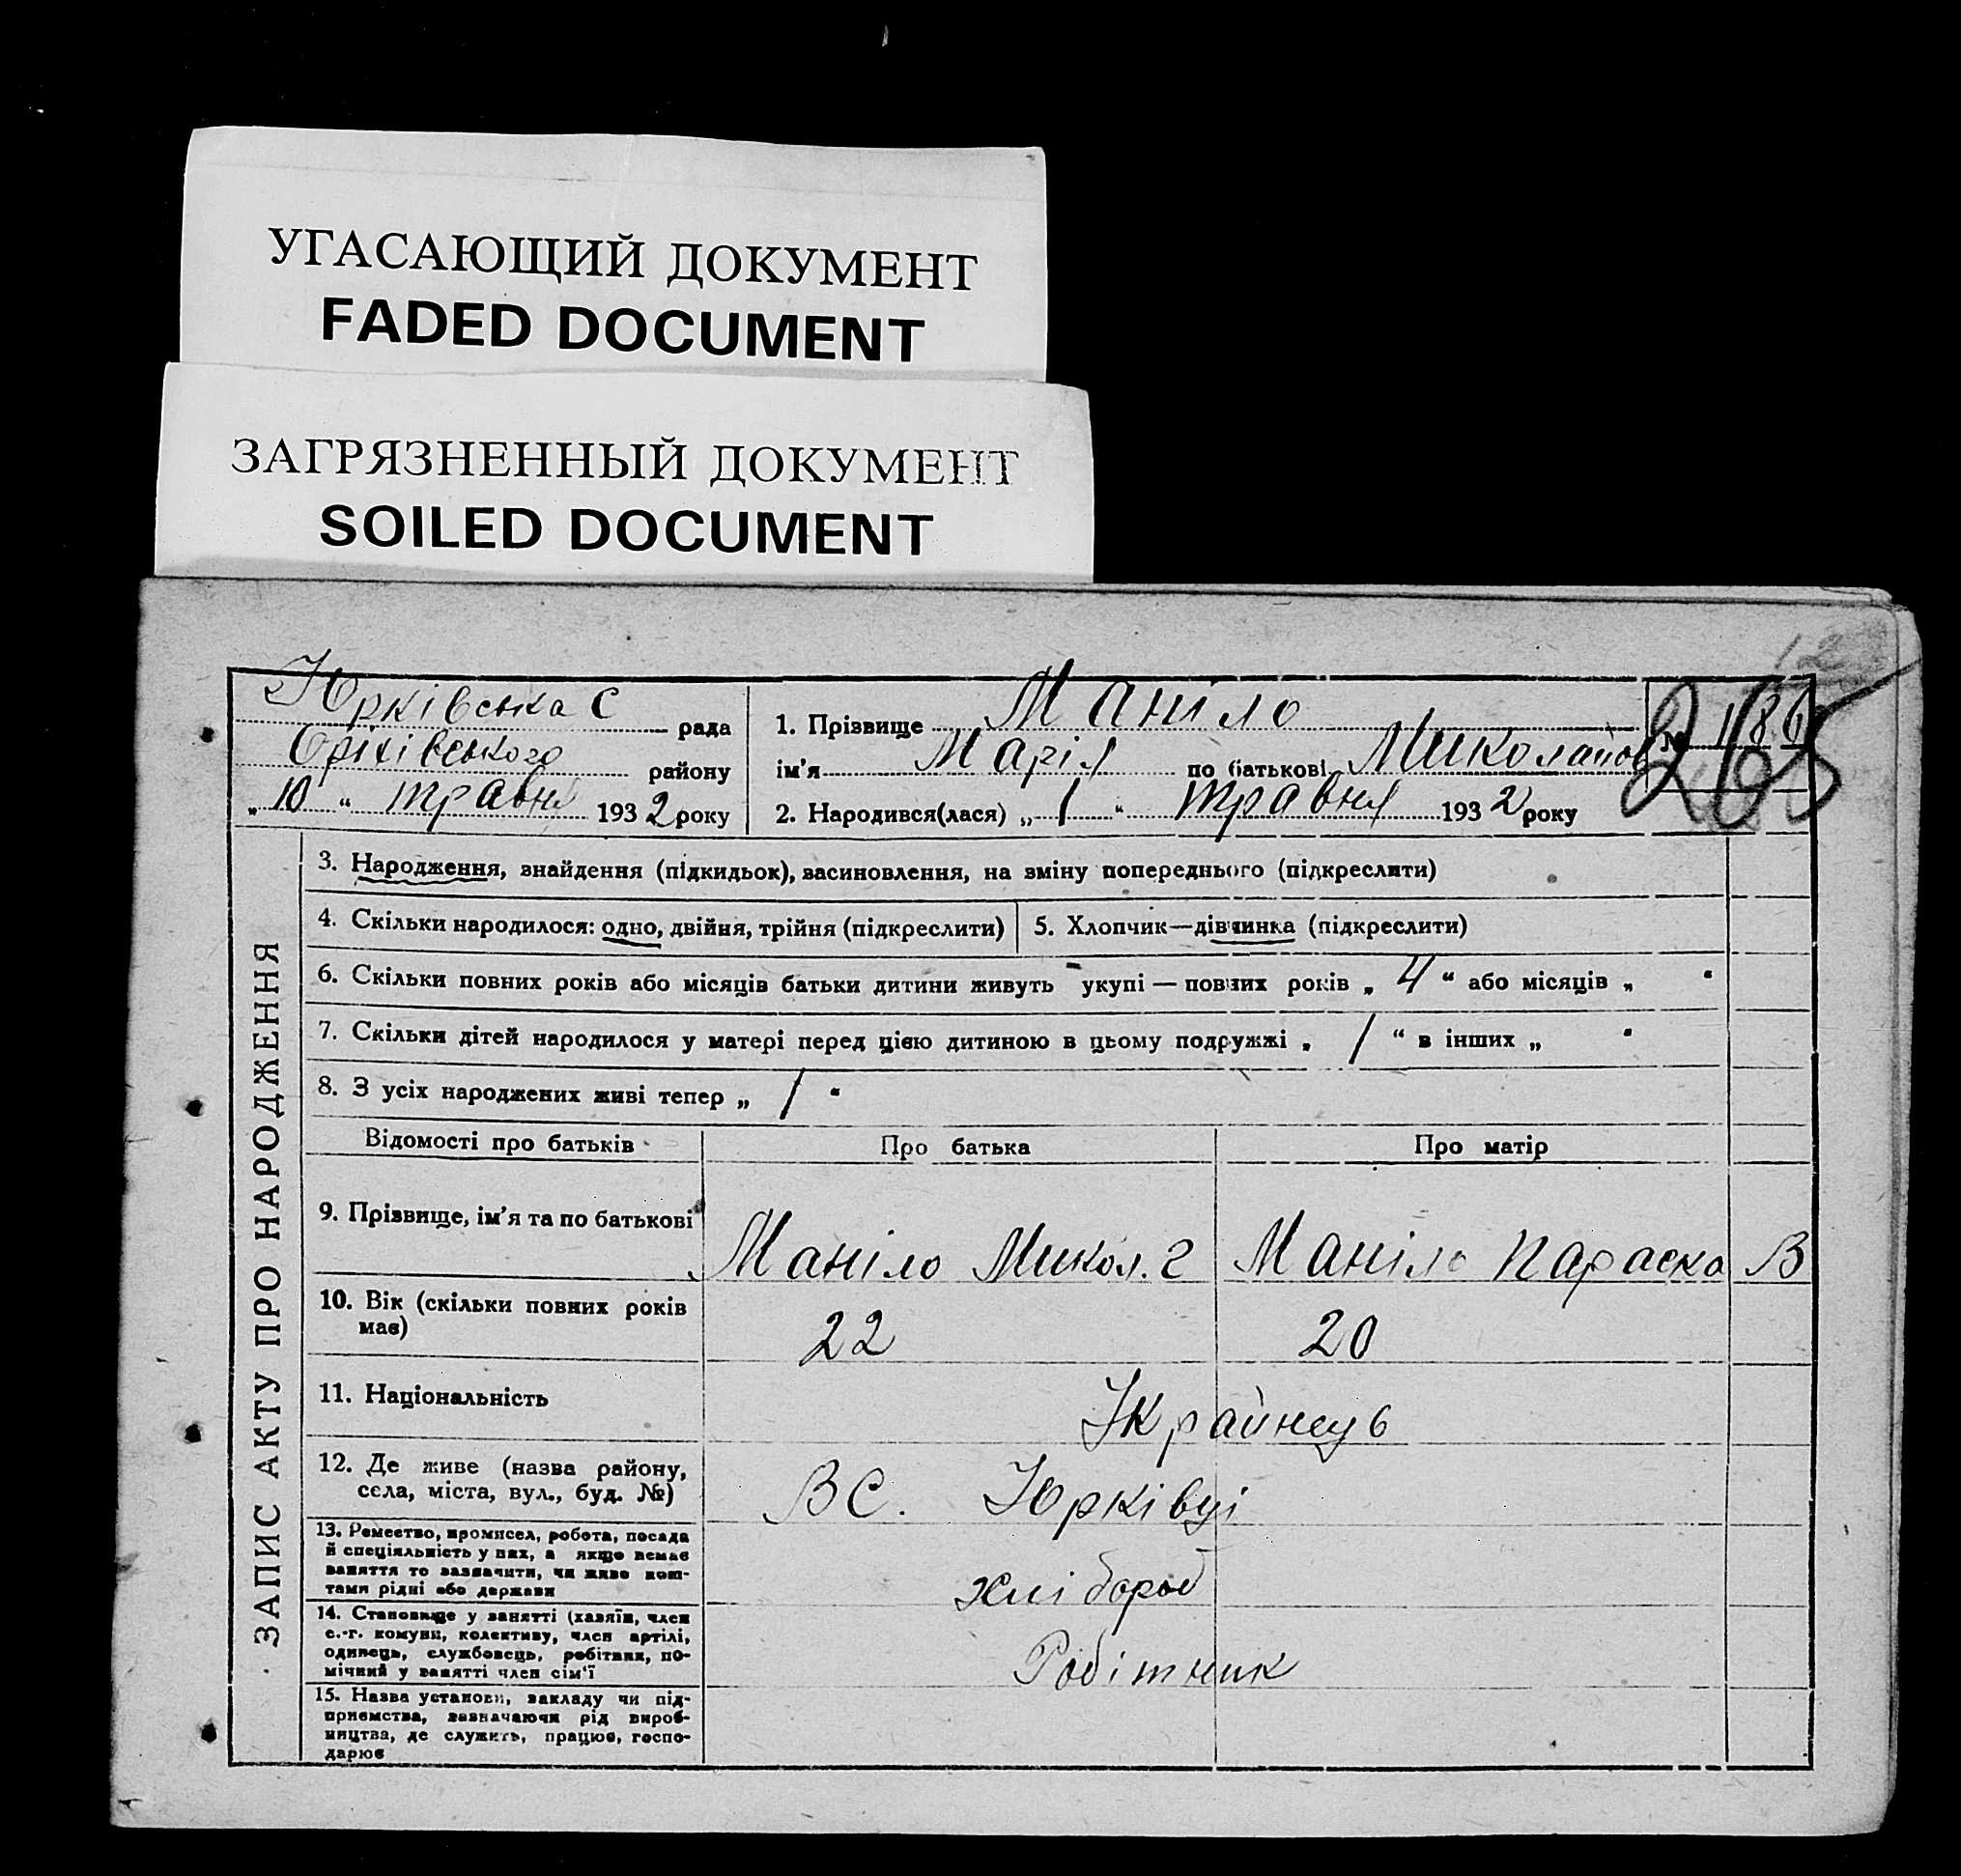 УГАСАЮЩИЙ ДОКУМЕНТ
FADED DOCUMENT
ЗАГРЯЗНЕННЫЙ ДОКУМЕНТ
SOILED DOCUMENT
Юрківська С рада
Оріхівського району
„ 10 “ травня 1932 року
1. Прізвище Маніло
ім’я Марія по батькові Миколаїов
2. Народився(лася) „ 1 “ травня 1932 року
№ 186
ЗАПИС АКТУ ПРО НАРОДЖЕННЯ
3. Народження, знайдення (підкидьок), засиновлення, на зміну попереднього (підкреслити)
4. Скільки народилося: одно, двійня, трійня (підкреслити)
5. Хлопчик—дівчинка (підкреслити)
6. Скільки повних років або місяців батьки дитини живуть укупі — повних років „ 4 “ або місяців „ “
7. Скільки дітей народилося у матері перед цією дитиною в цьому подружжі „ 1 “ в інших „ “
8. З усіх народжених живі тепер „ 1 “
Відомості про батьків Про батька Про матір
9. Прізвище, ім’я та по батькові Маніло Микол. Г Маніло Параска В
10. Вік (скільки повних років
має) 22 20
11. Національність Українець
12. Де живе (назва району,
села, міста, вул., буд. №) В С. Юрківці
13. Ремество, промисел, робота, посада
й спеціяльність у них, а якщо немає
заняття то зазначити, чи живе кош-
тами рідні або держави
хлібороб
14. Становище у занятті (хазяїн, член
с.-г. комуни, колективу, член артілі,
одинець, службовець, робітник, по-
мічний у занятті член сім’ї
Робітник
15. Назва установи, закладу чи під-
приємства, зазначаючи рід вироб-
ництва, де служить, працює, госпо-
дарює